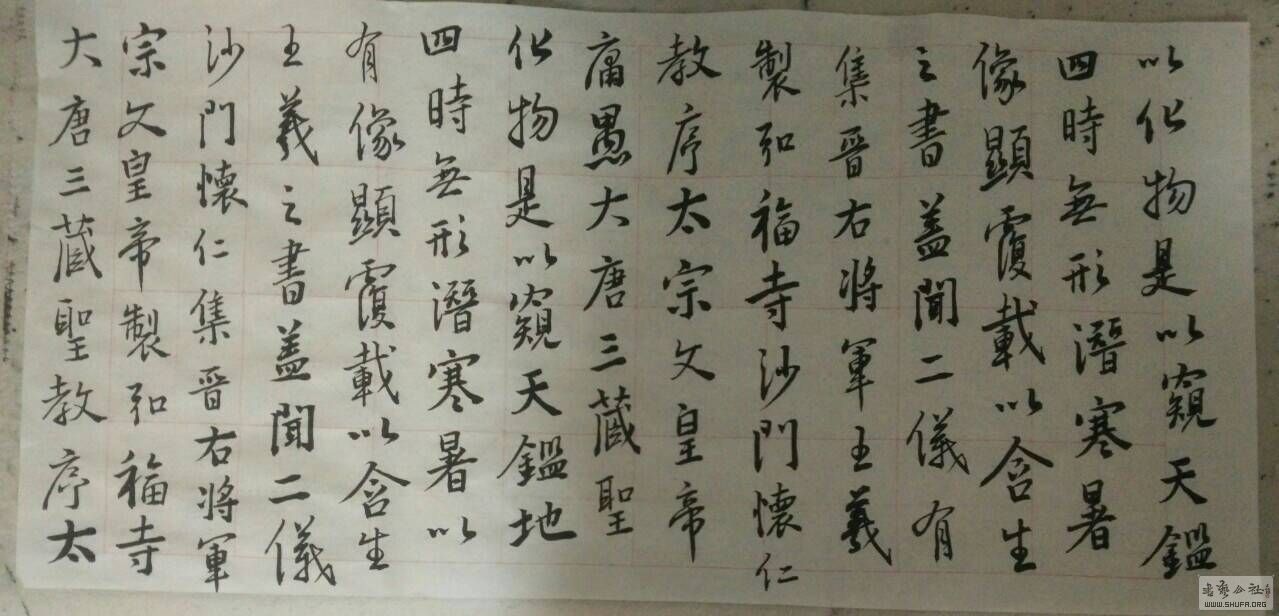 大唐三藏聖教序太
宗文皇帝製弘福寺
沙門懷仁集晉右將軍
王羲之書蓋聞二儀
有像顯覆載以含生
四時無形潛寒暑以
化物是以窺天鑑地
庸愚大唐三藏聖
教序太宗文皇帝
製弘福寺沙門懷仁
集晉右將軍王羲
之書蓋聞二儀有
像顯覆載以含生
四時無形潛寒暑
以化物是以窺天鑑
WWW.SHUFA.ORG